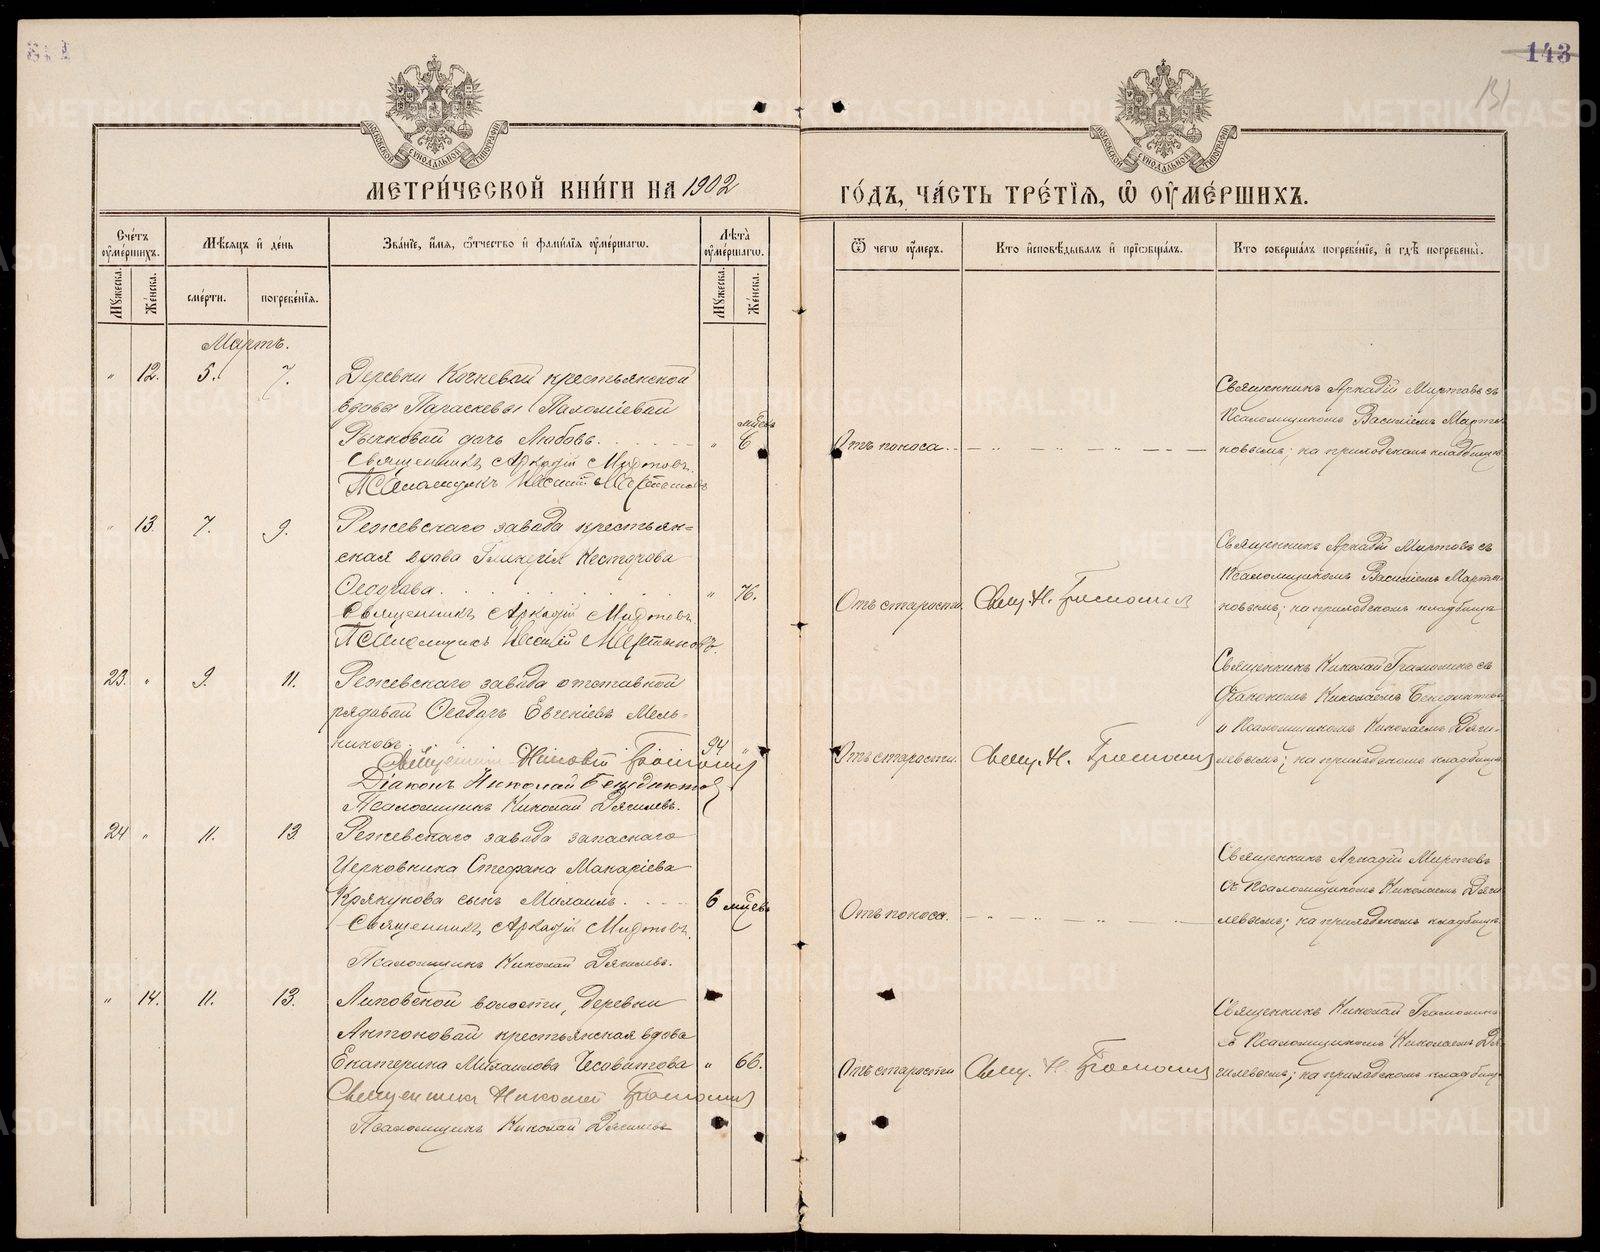 143
131
МОСКОВСКОЙ СУНОДАЛЬНОЙ ТИПОГРАФИИ
МОСКОВСКОЙ СУНОДАЛЬНОЙ ТИПОГРАФИИ
МЕТРИ́ЧЕСКОЙ КНИ́ГИ НА 1902
ГО́ДЪ, ЧА́СТЬ ТРЕ́ТІѦ, Ѽ ОУ҆МЕ́РШИХЪ.
Сче́тъ оу҆ме́ршихъ.
Мꙋжеска.
Же́нска.
Мѣ́сяцъ и҆ де́нь
сме́рти.
погребе́нїѧ.
Зва́нїе, и҆́мѧ, ѻ҆́тчество и҆ фами́лїѧ оу҆ме́ршагѡ.
Лѣ́та оу҆ме́ршагѡ.
Мꙋжеска.
Же́нска.
Ѿ чегѡ оу҆́меръ.
Кто и҆сповѣ́дывалъ и҆ прїѡбща́лъ.
Кто соверша́лъ погребе́нїе, и҆ гдѣ̀ погребены̀.
Мартъ.
" 12. 5. 7.
Деревни Кочневой крестьянской
вдовы Параскевы Паломіевой
Рычковой дочь Любовь.
" 6 мцевъ
Священникъ Аркадій Миртовъ.
Псаломщикъ Василій Мартыновъ
Отъ поноса.
Священникъ Аркадій Миртовъ съ
Псаломщикомъ Василіемъ Марты-
новымъ; на приходскомъ кладбищѣ
" 13. 7. 9.
Режевскаго завода крестьян-
ская вдова Гликерія Несторова
Ѳедорова.
" 76.
Священникъ Аркадій Миртовъ
Псаломщикъ Василій Мартыновъ.
Отъ старости. Свящ. Н. Грамолинъ
Священникъ Аркадій Миртовъ съ
Псаломщикомъ Василіемъ Марты-
новымъ; на приходскомъ кладбищѣ
23. " 9. 11.
Режевскаго завода отставной
рядовой Ѳеодоръ Евгеніевъ Мель-
никовъ
94 "
Священникъ Николай Грамолинъ
Діаконъ Николай Бенедиктовъ
Псаломщикъ Николай Дягилевъ.
Отъ старости. Свящ. Н. Грамолинъ
Священникъ Николай Грамолинъ съ
Діакономъ Николаемъ Бенедиктов
и Псаломщикомъ Николаемъ Дяги-
левымъ; на приходскомъ кладбищѣ
24 " 11. 13
Режевскаго завода запаснаго
Церковника Стефана Макаріева
Крякунова сынъ Михаилъ.
6 мцевъ
Священникъ Аркадій Миртовъ.
Псаломщикъ Николай Дягилевъ.
Отъ поноса.
Священникъ Аркадій Миртовъ
съ Псаломщикомъ Николаемъ Дяги-
левымъ; на приходскомъ кладбищѣ
" 14. 11. 13.
Липовской волости, деревни
Антоновой крестьянская вдова
Екатерина Михаилова Чесовитова
" 66.
Священникъ Николай Грамолинъ
Псаломщикъ Николай Дягилевъ
Отъ старости Свящ. Н. Грамолинъ
Священникъ Николай Грамолинъ
съ Псаломщикомъ Николаемъ Дя-
гилевымъ; на приходскомъ кладбищѣ
METRIKI.GASO-URAL.RU